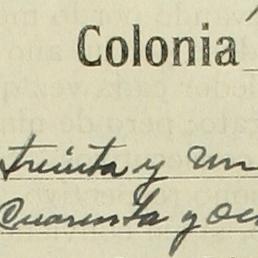 Colonia
treinta y un
Cuarenta y oc